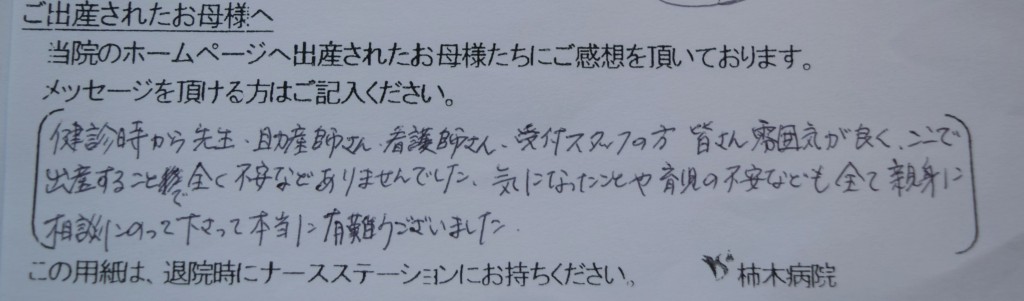 ご出産されたお母様へ
当院のホームページへ出産されたお母様たちにご感想を頂いております。
メッセージを頂ける方はご記入ください。
健診時から先生、助産師さん、看護師さん、受付スタッフの方 皆さん雰囲気が良く、ここで
出産することで全く不安などありませんでした、気になったことや育児の不安なども全て親身に
相談にのって下さって本当に有難うございました.
この用紙は、退院時にナースステーションにお持ちください。 柿木病院